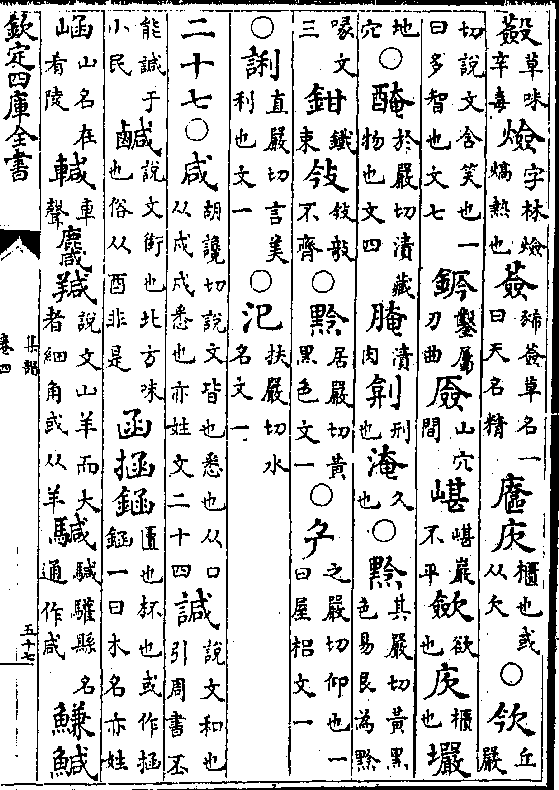 草味辛毒 字林㷿熱也 薟 草名一曰天名精 櫃也或从欠 ○ 丘嚴
切說文含笑也一曰多智也文七 鑿屬刃曲 厱 山穴間 嵁 嵁巖不平 歛 欲也 櫃也 壧
地穴 ○ 醃 於嚴切漬藏物也文四 腌 漬肉 刑也 淹 久也 ○ 黚 其嚴切黃黑色易艮為黔
喙文三 鉗 鐵束 敆 不齊 ○ 黚 居嚴切黃黑色文一 ○ 之嚴切仰也一曰屋梠文一
○ 直嚴切言美利也文一 ○ 氾 扶嚴切水名文一
二十七 ○ 咸 胡讒切說文皆也悉也从口从戌戌悉也亦姓文二十四 諴 說文和也引周書丕
能諴于小民 鹹 說文銜也北方味也俗从酉非是 函 匱也杯也或作 一曰木名亦姓
崡 山名在 有陵 車聲 麙 羬 說文山羊而大者細角或从羊 縣名通作咸 鰜 鹹
欽定四庫全書
集韻
卷四
五十七